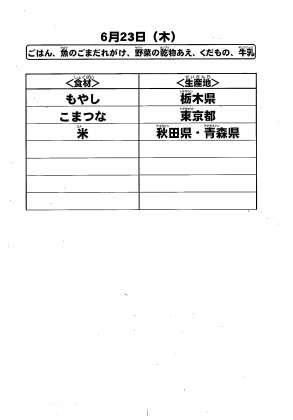 6月23日（木）
ごはん、魚のごまだれがけ、野菜の乾物あえ、くだもの、牛乳
＜食材＞ ＜生産地＞
もやし 栃木県
こまつな 東京都
米 秋田県・青森県